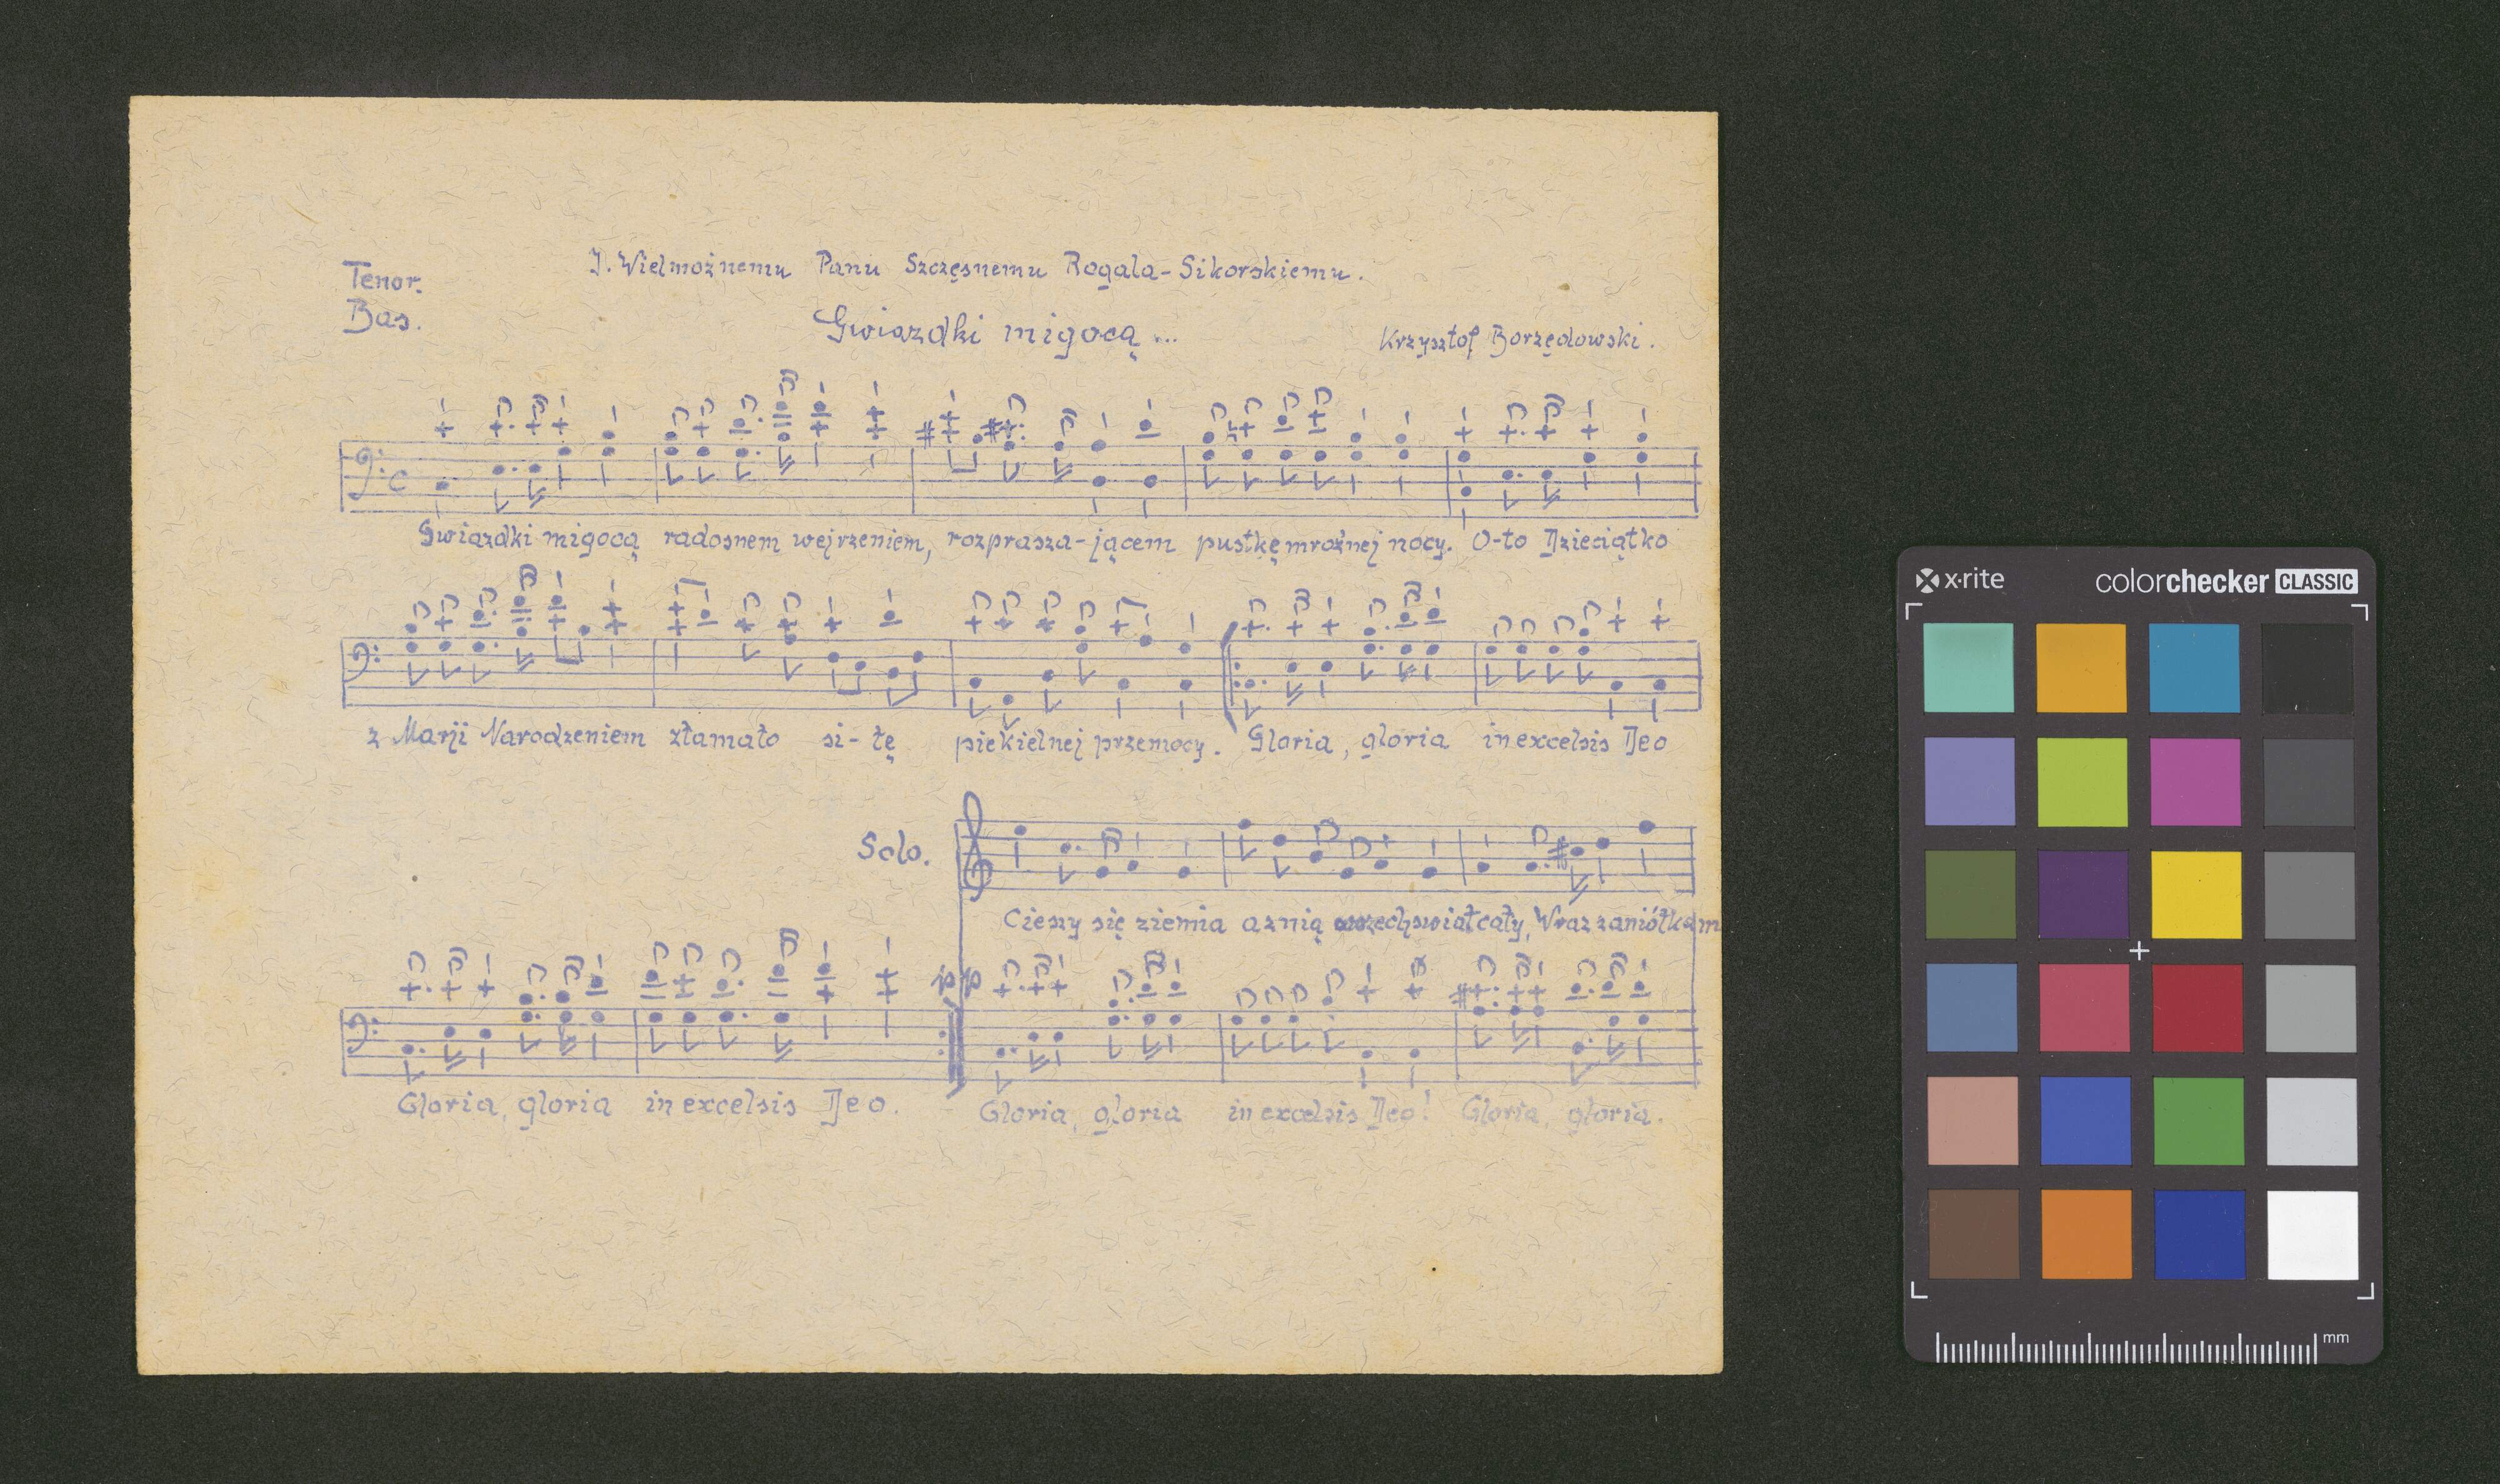 J. Wielmożnemu Panu Szczęsnemu Rogala-Sikorskiemu.
Tenor.
Bas.
Gwiazdki migocą...
Krzysztof Borzędowski.
Gwiazdki migocą radosnem wejrzeniem, rozprasza-jącem pustkę mroźnej nocy. O-to Dzieciątko
z Marji Narodzeniem złamało si-łę piekielnej przemocy. Gloria, gloria in excelsis Deo
Solo.
Cieszy się ziemia a z nią wszechświat cały, Wraz z aniółkam
pp
Gloria, gloria in excelsis Deo. Gloria, gloria in excelsis Deo! Gloria, gloria.
x·rite colorchecker CLASSIC
mm